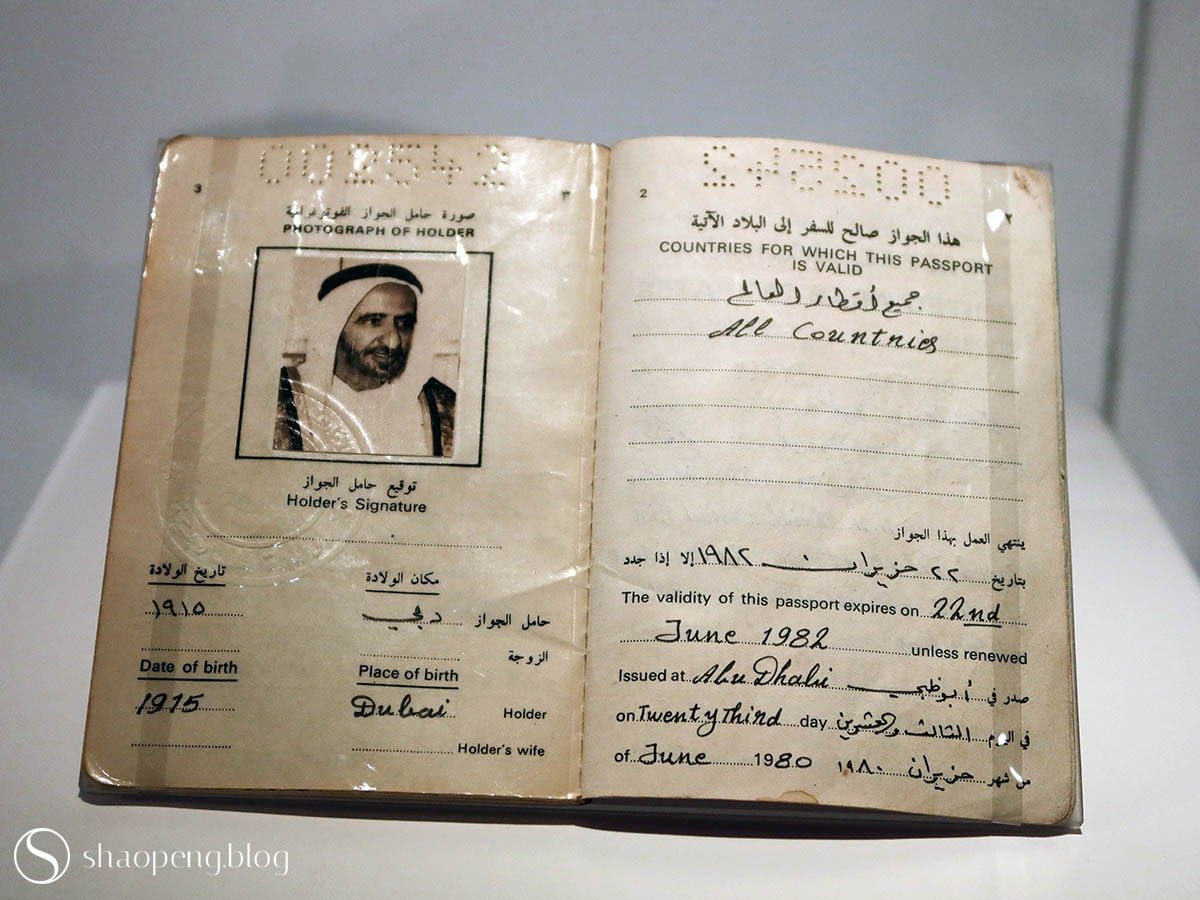 002542
3
٣
صورة حامل الجواز الفوتوغرافية
PHOTOGRAPH OF HOLDER
توقيع حامل الجواز
Holder's Signature
تاريخ الولادة
مكان الولادة
١٩١٥
دبي
حامل الجواز
الزوجة
Date of birth
Place of birth
1915
Dubai
Holder
Holder's wife
002542
2
٢
هذا الجواز صالح للسفر إلى البلاد الآتية
COUNTRIES FOR WHICH THIS PASSPORT
IS VALID
جميع أقطار العالم
All Countries
ينتهي العمل بهذا الجواز
بتاريخ ٢٢ حزيران ١٩٨٢ إلا إذا جدد
The validity of this passport expires on 22nd
June 1982 unless renewed
Issued at Abu Dhabi أبوظبي صدر في
on Twenty Third day الثالث والعشرين في اليوم
of June 1980 ١٩٨٠ حزيران من شهر
shaopeng.blog